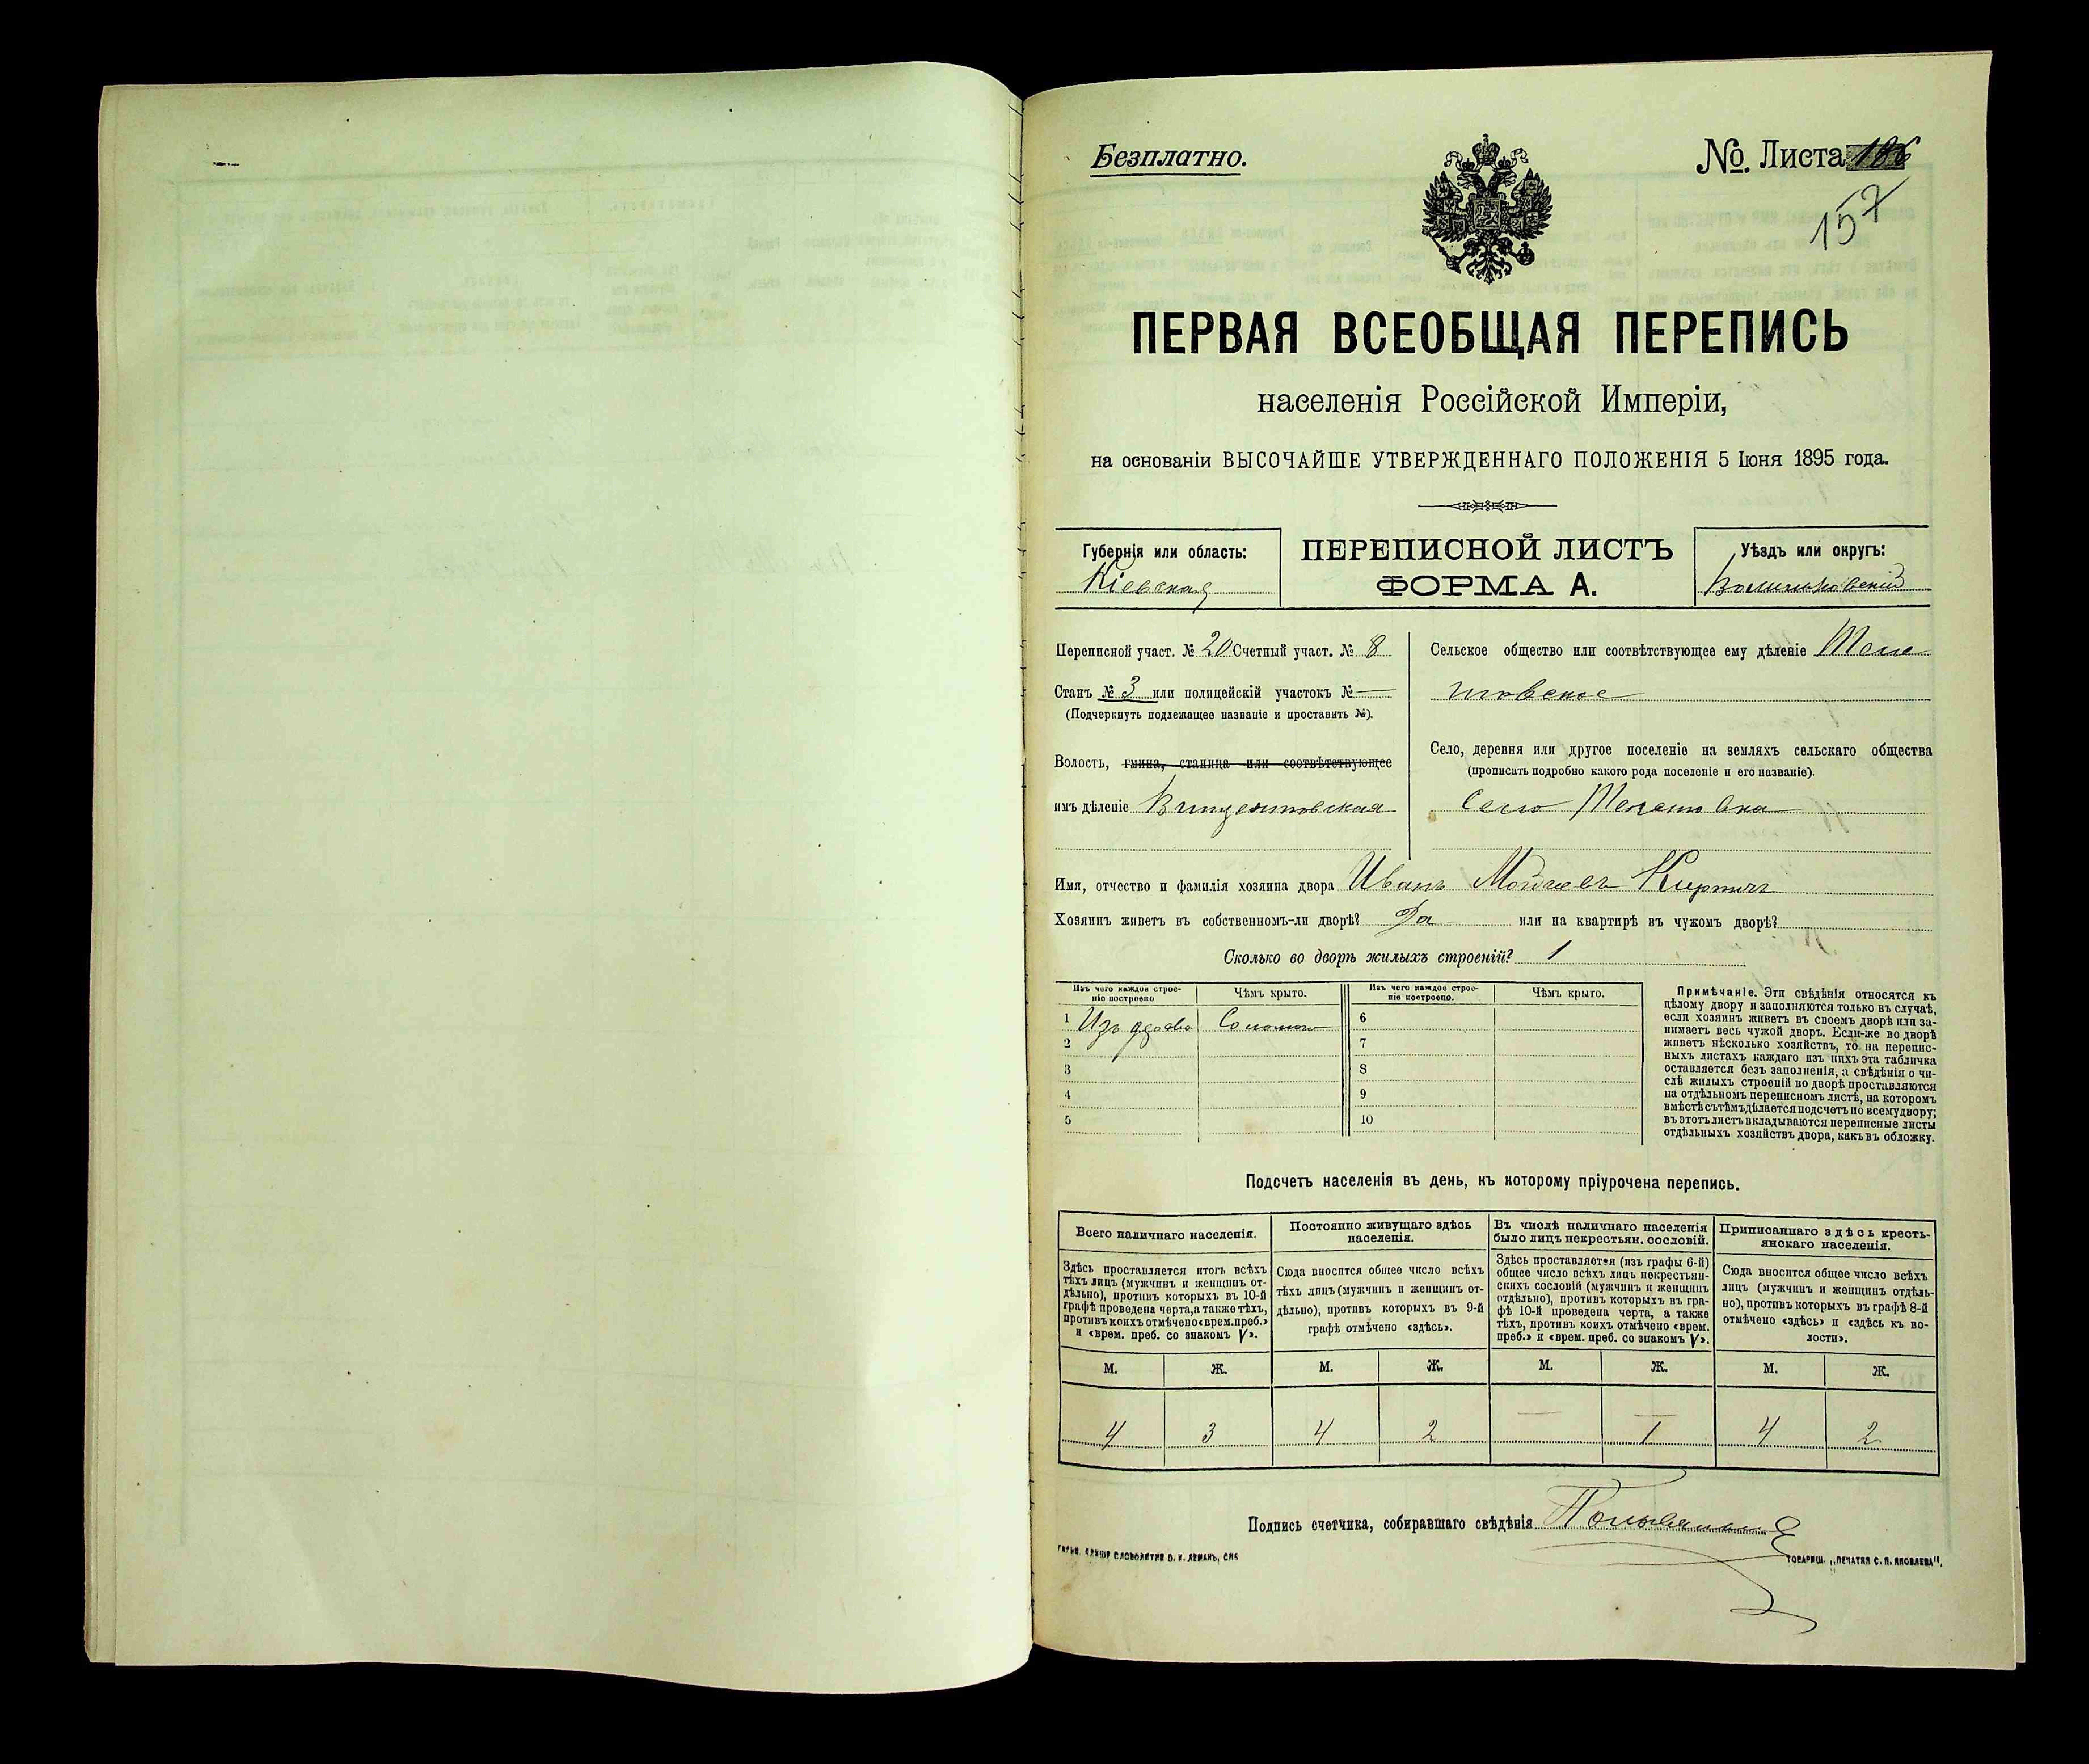 Безплатно.
№. Листа 186
157
ПЕРВАЯ ВСЕОБЩАЯ ПЕРЕПИСЬ
населенія Россійской Имперіи,
на основаніи ВЫСОЧАЙШЕ УТВЕРЖДЕННАГО ПОЛОЖЕНІЯ 5 Іюня 1895 года.
Губернія или область:
Кіевская
ПЕРЕПИСНОЙ ЛИСТЪ
ФОРМА А.
Уѣздъ или округъ:
Переписной участ. № 20 Счетный участ. № 8
Станъ № 3 или полицейскій участокъ № —
(Подчеркнуть подлежащее названіе и проставить №).
Волость, гмина, станица или соотвѣтствующее
имъ дѣленіе Винцентовская
Сельское общество или соотвѣтствующее ему дѣленіе
Село, деревня или другое поселеніе на земляхъ сельскаго общества
(прописать подробно какого рода поселеніе и его названіе).
Село
Имя, отчество и фамилія хозяина двора Иванъ Мойсеевъ Кирпичъ
Хозяинъ живетъ въ собственномъ-ли дворѣ? Да или на квартирѣ въ чужомъ дворѣ?
Сколько во дворѣ жилыхъ строеній? 1
Изъ чего каждое строе-
ніе построено
Чѣмъ крыто.
Изъ чего каждое строе-
ніе построено.
Чѣмъ крыто.
1 Изъ дерева Соломою
2
3
4
5
6
7
8
9
10
Примѣчаніе. Эти свѣдѣнія относятся къ
цѣлому двору и заполняются только въ случаѣ,
если хозяинъ живетъ въ своемъ дворѣ или за-
нимаетъ весь чужой дворъ. Если-же во дворѣ
живетъ нѣсколько хозяйствъ, то на перепис-
ныхъ листахъ каждаго изъ нихъ эта табличка
оставляется безъ заполненія, а свѣдѣнія о чи-
слѣ жилыхъ строеній во дворѣ проставляются
на отдѣльномъ переписномъ листѣ, на которомъ
вмѣстѣ съ тѣмъ дѣлается подсчетъ по всему двору;
въ этотъ листъ вкладываются переписные листы
отдѣльныхъ хозяйствъ двора, какъ въ обложку.
Подсчетъ населенія въ день, къ которому пріурочена перепись.
Всего наличнаго населенія.
Постоянно живущаго здѣсь
населенія.
Въ числѣ наличнаго населенія
было лицъ некрестьян. сословій.
Приписаннаго здѣсь кресть-
янскаго населенія.
Здѣсь проставляется итогъ всѣхъ
тѣхъ лицъ (мужчинъ и женщинъ от-
дѣльно), противъ которыхъ въ 10-й
графѣ проведена черта, а также тѣхъ,
противъ коихъ отмѣчено «врем. преб.»
и «врем. преб. со знакомъ V».
Сюда вносится общее число всѣхъ
тѣхъ лицъ (мужчинъ и женщинъ от-
дѣльно), противъ которыхъ въ 9-й
графѣ отмѣчено «здѣсь».
Здѣсь проставляется (изъ графы 6-й)
общее число всѣхъ лицъ некрестьян-
скихъ сословій (мужчинъ и женщинъ
отдѣльно), противъ которыхъ въ гра-
фѣ 10-й проведена черта, а также
тѣхъ, противъ коихъ отмѣчено «врем.
преб.» и «врем. преб. со знакомъ V».
Сюда вносится общее число всѣхъ
лицъ (мужчинъ и женщинъ отдѣль-
но), противъ которыхъ въ графѣ 8-й
отмѣчено «здѣсь» и «здѣсь къ во-
лости».
М. Ж. М. Ж. М. Ж. М. Ж.
4 3 4 2 — 1 4 2
Подпись счетчика, собиравшаго свѣдѣнія
СЛОВОЛИТНЯ О. И. ЛЕМАНЪ, СПБ
ТОВАРИЩ. „ПЕЧАТНЯ С. П. ЯКОВЛЕВА“.